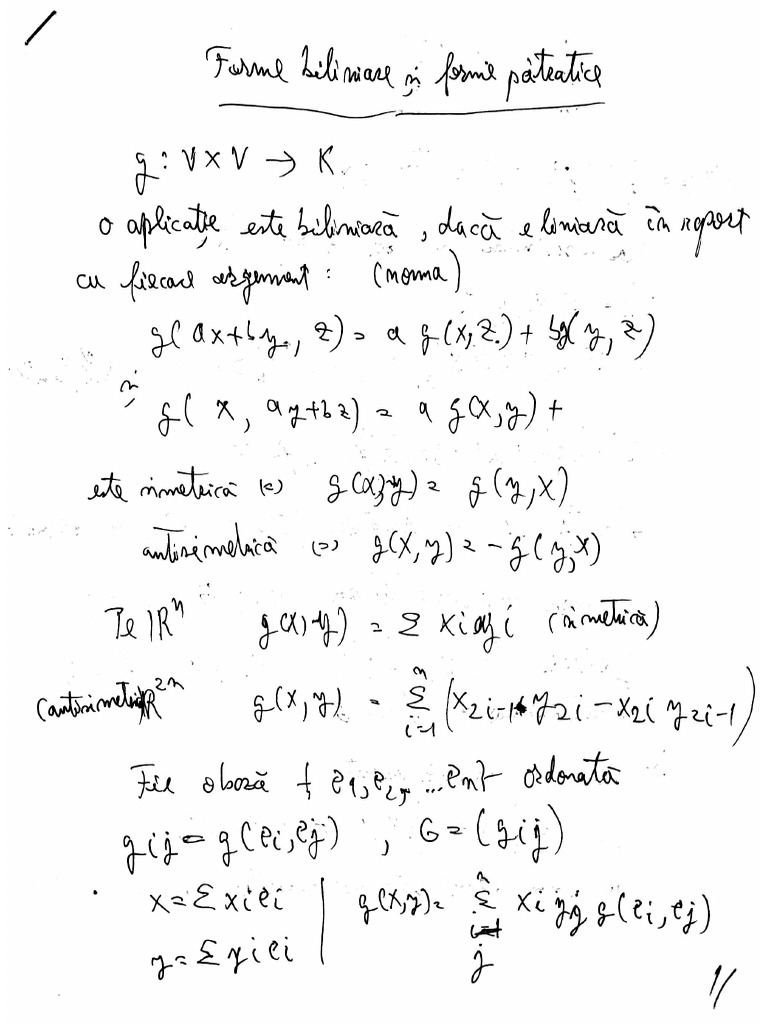 /
Forme biliniare și forme pătratice
g : V × V → K
o aplicație este biliniară, dacă e liniară în raport
cu fiecare argument : (norma)
g(ax+by, z) = a g(x,z) + bg(y, z)
și
g( x, ay+bz) = a g(x,y) +
este simetrică (=) g(x,y) = g(y,x)
antisimetrică (=) g(x,y) = -g(y,x)
Pe ℝⁿ g(x,y) = Σ xi yi (simetrică)
(antisimetrică) ℝ²ⁿ g(x,y) = Σⁿᵢ₌₁ (x2i-1 y2i - x2i y2i-1)
Fie o bază { e1, e2, ... en } ordonată
gij = g(ei, ej) , G = (gij)
x = Σ xi ei | g(x,y) = Σⁿ i j xi yj g(ei, ej)
y = Σ yi ei
1/